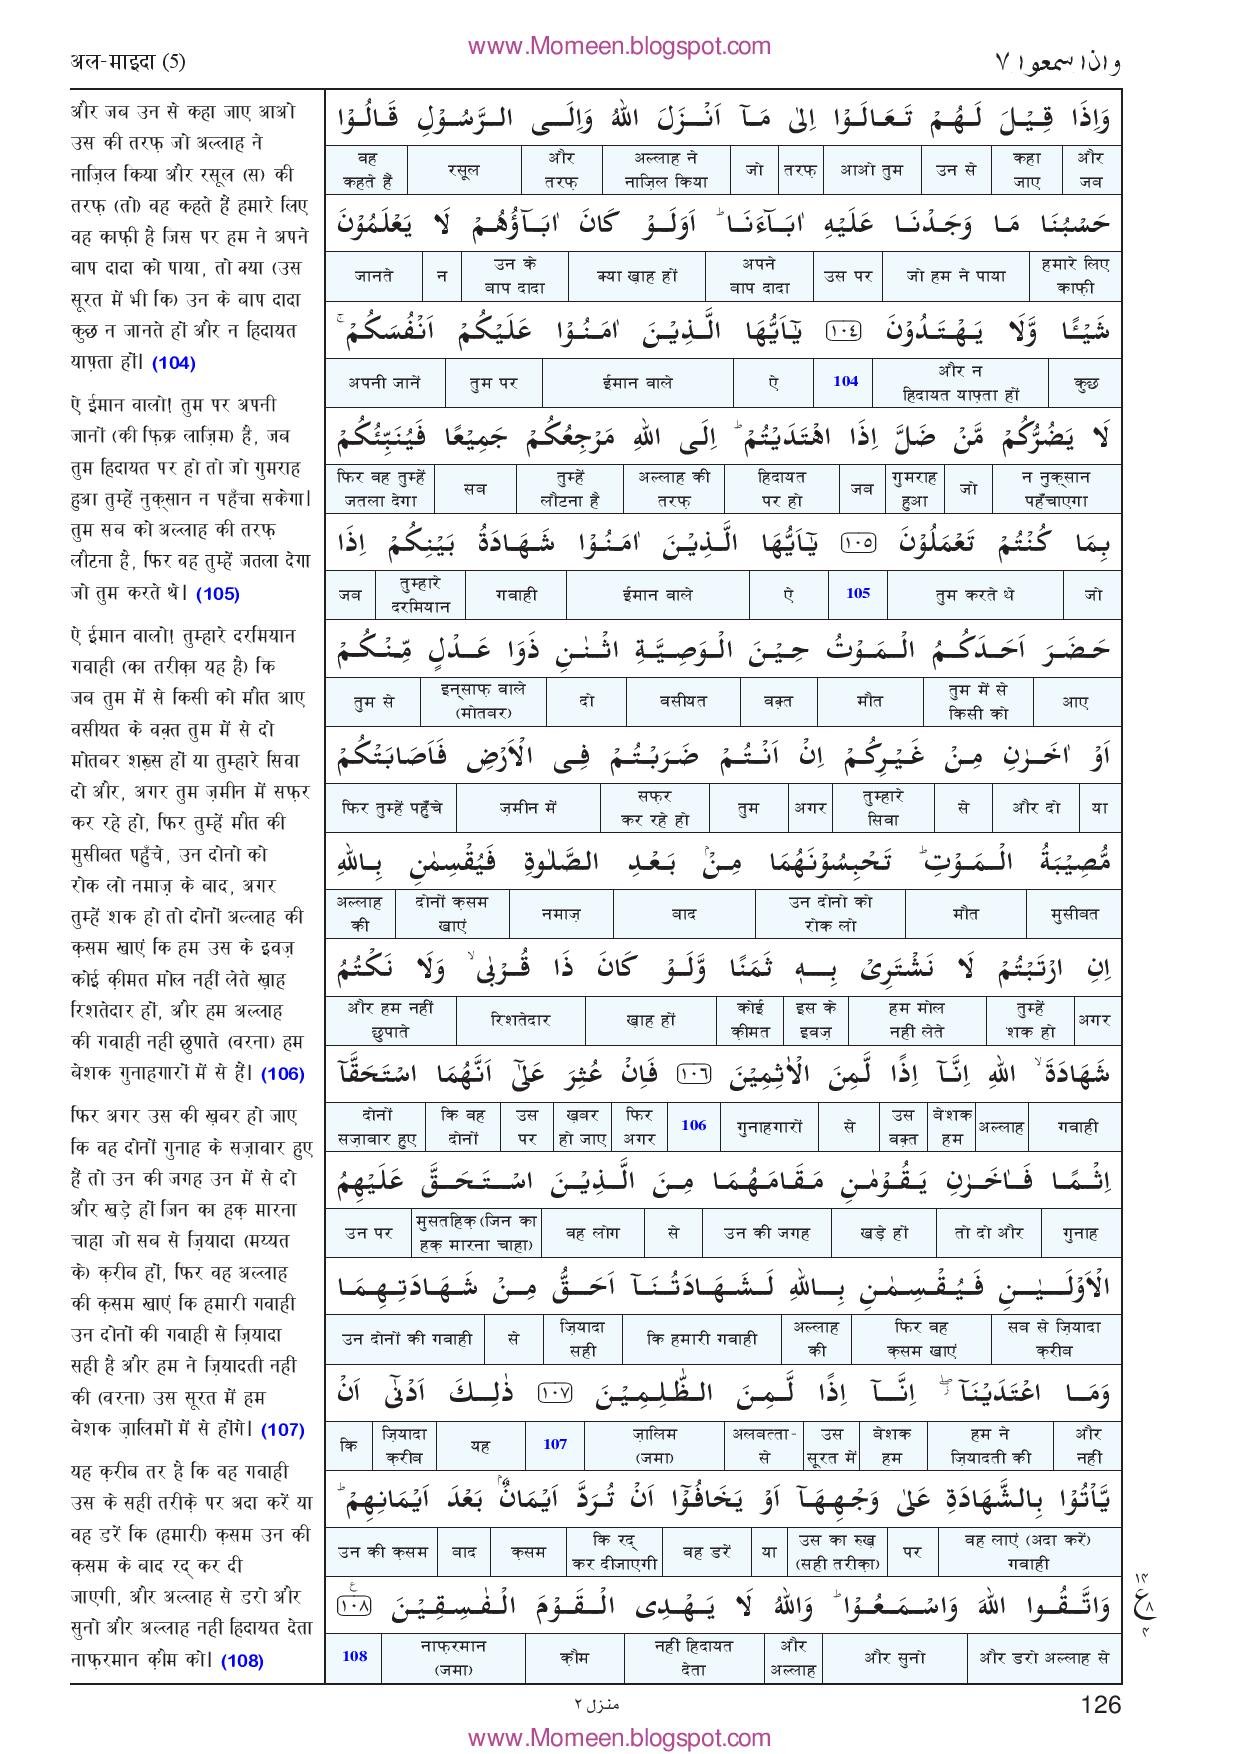 www.Momeen.blogspot.com
अल-माइदा (5)
واذا سمعوا ٧
और जब उन से कहा जाए आओ
उस की तरफ़ जो अल्लाह ने
नाज़िल किया और रसूल (स) की
तरफ़ (तो) वह कहते हैं हमारे लिए
वह काफ़ी है जिस पर हम ने अपने
बाप दादा को पाया, तो क्या (उस
सूरत में भी कि) उन के बाप दादा
कुछ न जानते हों और न हिदायत
याफ़्ता हों। (104)
ऐ ईमान वालो! तुम पर अपनी
जानों (की फ़िक्र लाज़िम) है, जब
तुम हिदायत पर हो तो जो गुमराह
हुआ तुम्हें नुक़्सान न पहुँचा सकेगा।
तुम सब को अल्लाह की तरफ़
लौटना है, फिर वह तुम्हें जतला देगा
जो तुम करते थे। (105)
ऐ ईमान वालो! तुम्हारे दरमियान
गवाही (का तरीक़ा यह है) कि
जब तुम में से किसी को मौत आए
वसीयत के वक़्त तुम में से दो
मोतबर शख़्स हों या तुम्हारे सिवा
दो और, अगर तुम ज़मीन में सफ़र
कर रहे हो, फिर तुम्हें मौत की
मुसीबत पहुँचे, उन दोनो को
रोक लो नमाज़ के बाद, अगर
तुम्हें शक हो तो दोनों अल्लाह की
क़सम खाएं कि हम उस के इवज़
कोई क़ीमत मोल नहीं लेते ख़ाह
रिशतेदार हों, और हम अल्लाह
की गवाही नहीं छुपाते (वरना) हम
बेशक गुनाहगारों में से हैं। (106)
फिर अगर उस की ख़बर हो जाए
कि वह दोनों गुनाह के सज़ावार हुए
हैं तो उन की जगह उन में से दो
और खड़े हों जिन का हक़ मारना
चाहा जो सब से ज़ियादा (मय्यत
के) क़रीब हों, फिर वह अल्लाह
की क़सम खाएं कि हमारी गवाही
उन दोनों की गवाही से ज़ियादा
सही है और हम ने ज़ियादती नहीं
की (वरना) उस सूरत में हम
बेशक ज़ालिमों में से होंगे। (107)
यह क़रीब तर है कि वह गवाही
उस के सही तरीक़े पर अदा करें या
वह डरें कि (हमारी) क़सम उन की
क़सम के बाद रद् कर दी
जाएगी, और अल्लाह से डरो और
सुनो और अल्लाह नहीं हिदायत देता
नाफ़रमान क़ौम को। (108)
وَاِذَا قِيْلَ لَهُمْ تَعَالَوْا اِلٰى مَآ اَنْزَلَ اللهُ وَاِلَى الرَّسُوْلِ قَالُوْا
और जब | कहा जाए | उन से | आओ तुम | तरफ़ | जो | अल्लाह ने नाज़िल किया | और तरफ़ | रसूल | वह कहते हैं
حَسْبُنَا مَا وَجَدْنَا عَلَيْهِ اٰبَآءَنَا ؕ اَوَلَوْ كَانَ اٰبَآؤُهُمْ لَا يَعْلَمُوْنَ
हमारे लिए काफ़ी | जो हम ने पाया | उस पर | अपने बाप दादा | क्या ख़ाह हों | उन के बाप दादा | न | जानते
شَيْئًا وَّلَا يَهْتَدُوْنَ ١٠٤ يٰٓاَيُّهَا الَّذِيْنَ اٰمَنُوْا عَلَيْكُمْ اَنْفُسَكُمْ ۚ
कुछ | और न हिदायत याफ़्ता हों | 104 | ऐ | ईमान वाले | तुम पर | अपनी जानें
لَا يَضُرُّكُمْ مَّنْ ضَلَّ اِذَا اهْتَدَيْتُمْ ؕ اِلَى اللهِ مَرْجِعُكُمْ جَمِيْعًا فَيُنَبِّئُكُمْ
न नुक़्सान पहुँचाएगा | जो | गुमराह हुआ | जब | हिदायत पर हो | अल्लाह की तरफ़ | तुम्हें लौटना है | सब | फिर वह तुम्हें जतला देगा
بِمَا كُنْتُمْ تَعْمَلُوْنَ ١٠٥ يٰٓاَيُّهَا الَّذِيْنَ اٰمَنُوْا شَهَادَةُ بَيْنِكُمْ اِذَا
जो | तुम करते थे | 105 | ऐ | ईमान वाले | गवाही | तुम्हारे दरमियान | जब
حَضَرَ اَحَدَكُمُ الْمَوْتُ حِيْنَ الْوَصِيَّةِ اثْنٰنِ ذَوَا عَدْلٍ مِّنْكُمْ
आए | तुम में से किसी को | मौत | वक़्त | वसीयत | दो | इन्साफ़ वाले (मोतबर) | तुम से
اَوْ اٰخَرٰنِ مِنْ غَيْرِكُمْ اِنْ اَنْتُمْ ضَرَبْتُمْ فِى الْاَرْضِ فَاَصَابَتْكُمْ
या | और दो | से | तुम्हारे सिवा | अगर | तुम | सफ़र कर रहे हो | ज़मीन में | फिर तुम्हें पहुँचे
مُّصِيْبَةُ الْمَوْتِ ؕ تَحْبِسُوْنَهُمَا مِنْۢ بَعْدِ الصَّلٰوةِ فَيُقْسِمٰنِ بِاللهِ
मुसीबत | मौत | उन दोनो को रोक लो | बाद | नमाज़ | दोनों क़सम खाएं | अल्लाह की
اِنِ ارْتَبْتُمْ لَا نَشْتَرِىْ بِهٖ ثَمَنًا وَّلَوْ كَانَ ذَا قُرْبٰى ۙ وَلَا نَكْتُمُ
अगर | तुम्हें शक हो | हम मोल नहीं लेते | इस के इवज़ | कोई क़ीमत | ख़ाह हों | रिशतेदार | और हम नहीं छुपाते
شَهَادَةَ ۙ اللهِ اِنَّآ اِذًا لَّمِنَ الْاٰثِمِيْنَ ١٠٦ فَاِنْ عُثِرَ عَلٰٓى اَنَّهُمَا اسْتَحَقَّآ
गवाही | अल्लाह | बेशक हम | उस वक़्त | से | गुनाहगारों | 106 | फिर अगर | ख़बर हो जाए | उस पर | कि वह दोनों | दोनों सज़ावार हुए
اِثْمًا فَاٰخَرٰنِ يَقُوْمٰنِ مَقَامَهُمَا مِنَ الَّذِيْنَ اسْتَحَقَّ عَلَيْهِمُ
गुनाह | तो दो और | खड़े हों | उन की जगह | से | वह लोग | मुसतहिक़ (जिन का हक़ मारना चाहा) | उन पर
الْاَوْلَيٰنِ فَيُقْسِمٰنِ بِاللهِ لَشَهَادَتُنَآ اَحَقُّ مِنْ شَهَادَتِهِمَا
सब से ज़ियादा क़रीब | फिर वह क़सम खाएं | अल्लाह की | कि हमारी गवाही | ज़ियादा सही | से | उन दोनों की गवाही
وَمَا اعْتَدَيْنَآ ۖ اِنَّآ اِذًا لَّمِنَ الظّٰلِمِيْنَ ١٠٧ ذٰلِكَ اَدْنٰٓى اَنْ
और नहीं | हम ने ज़ियादती की | बेशक हम | उस सूरत में | अलबत्ता - से | ज़ालिम (जमा) | 107 | यह | ज़ियादा क़रीब | कि
يَّاْتُوْا بِالشَّهَادَةِ عَلٰى وَجْهِهَآ اَوْ يَخَافُوْٓا اَنْ تُرَدَّ اَيْمَانٌۢ بَعْدَ اَيْمَانِهِمْ ؕ
वह लाएं (अदा करें) गवाही | पर | उस का रुख़ (सही तरीक़ा) | या | वह डरें | कि रद् कर दीजाएगी | क़सम | बाद | उन की क़सम
وَاتَّقُوا اللهَ وَاسْمَعُوْا ؕ وَاللهُ لَا يَهْدِى الْقَوْمَ الْفٰسِقِيْنَ ١٠٨
और डरो अल्लाह से | और सुनो | और अल्लाह | नहीं हिदायत देता | क़ौम | नाफ़रमान (जमा) | 108
١٤ ع ٨ ۴
منزل ٢
126
www.Momeen.blogspot.com